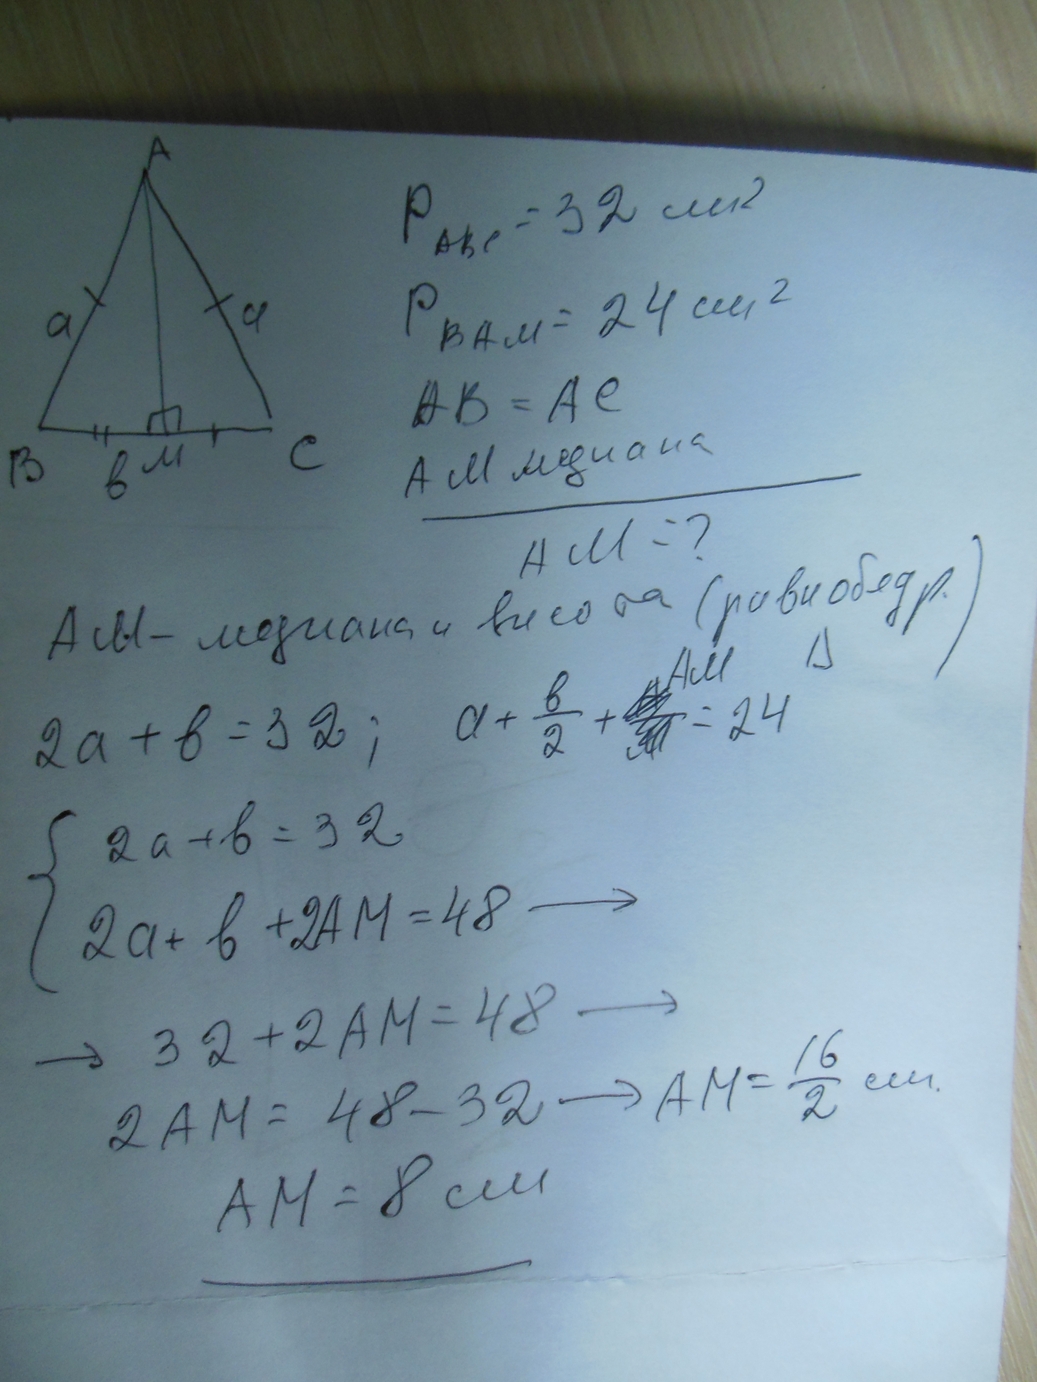 A
a
a
B
в
M
C
P ABC = 32 см²
P BAM = 24 см²
AB = AC
AM медиана
AM = ?
AM – медиана и висота (равнобедр. Δ)
2a + в = 32; a + в/2 + AM = 24
2a + в = 32
2a + в + 2AM = 48 →
→ 32 + 2AM = 48 →
2AM = 48 – 32 → AM = 16/2 см.
AM = 8 см